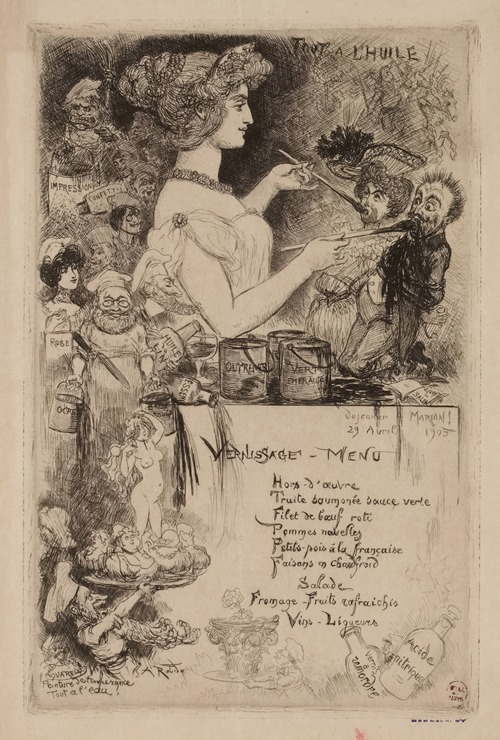 TOUT A L'HUILE
IMPRESSION
ROSE
OCRE
HUILE
OUTREMER
VERT
EMERAUDE
Dejeuner MARIANI
29 Avril 1905
VERNISSAGE - MENU
Hors-d'œuvre
Truite saumonée sauce verte
Filet de bœuf roti
Pommes novelles
Petits-pois à la française
Faisans en chaufroid
Salade
Fromage - Fruits rafraichis
Vins - Liqueurs
Acide
nitrique
vernis
à
remordre
Peinture de tempérance
Tout à l'eau!
A Robida